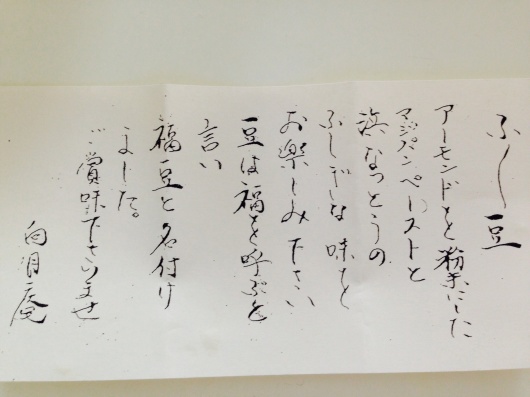 ふし豆
アーモンドを粉末にした
マジパンペーストと
浜なっとうの
ふしぎな味を
お楽しみ下さい
豆は福を呼ぶと
言い
福豆と名付け
ました。
ご賞味下さいませ
白月庵